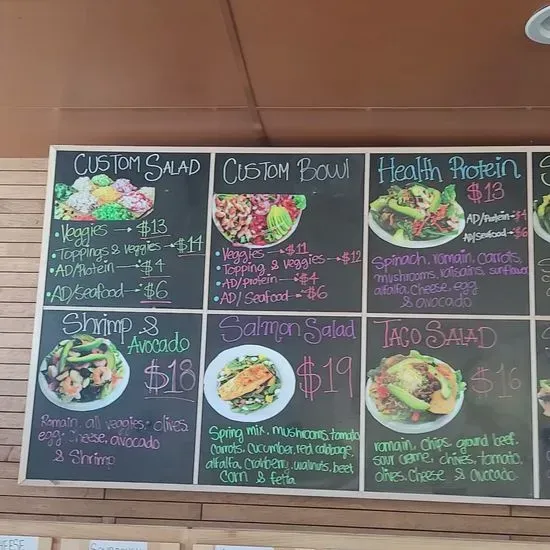 CUSTOM SALAD
• Veggies → $13
• Toppings & Veggies → $14
• AD/Protein → $4
• AD/Seafood → $6
CUSTOM BOWL
• Veggies → $11
• Topping & Veggies → $12
• AD/Protein → $4
• AD/Seafood → $6
Health Protein
$13
AD/Protein → $4
AD/Seafood → $6
Spinach, romain, carrots,
mushrooms, raisains, sunflower
alfalfa, cheese, egg
& avocado
Shrimp &
Avocado
$18
Romain, all veggies, olives
egg, cheese, avocado
& Shrimp
Salmon Salad
$19
Spring mix, mushrooms, tomato
carrots, cucumber, red cabbage,
alfalfa, Cranberry, walnuts, beet
corn & fetta
TACO SALAD
$16
romain, chips, ground beef,
sour creme, chives, tomato,
olives, cheese & avocado
CHEESE